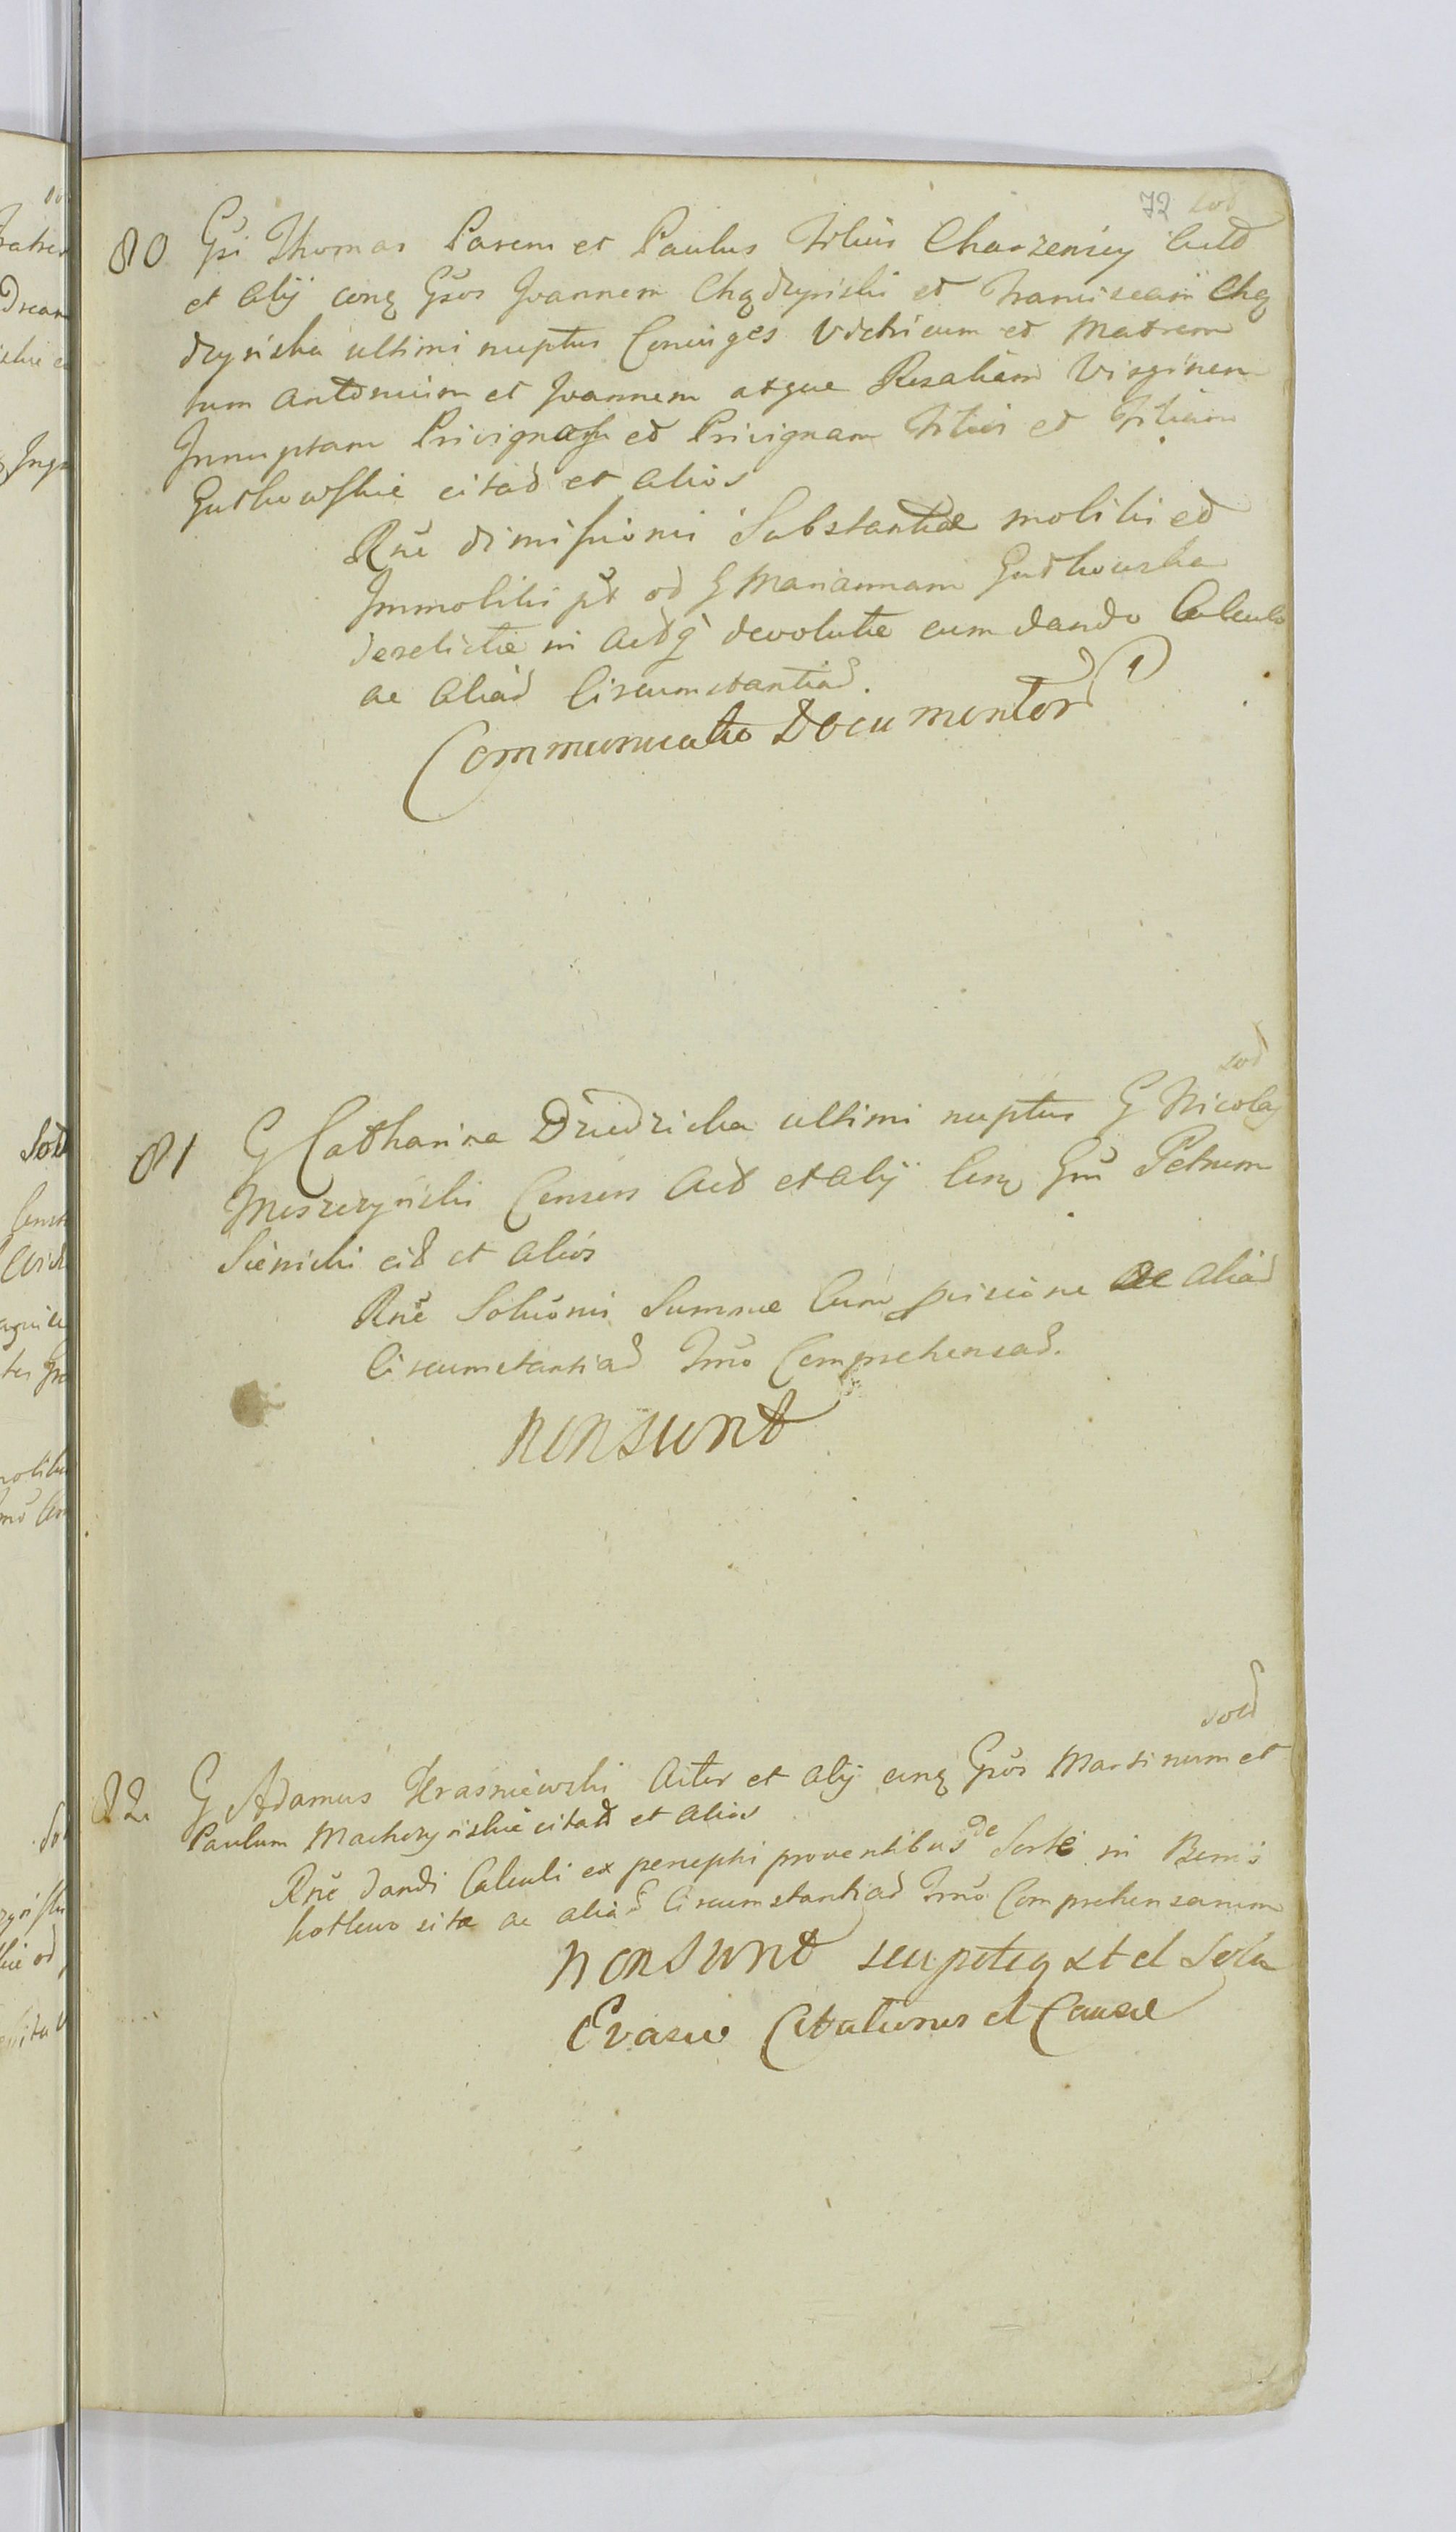 72 sod
80 Gsi Thomas Parens et Paulus Filius Charzeńscy Actd
et Alÿ conq Gsos Joannem Chądzyński et Franciscam Chą
dzyńska ultimi nuptus Coniuges Vitricum et Matrem
tum Antonium et Joannem atque Rosaliam Virginem
Innuptam Privignos et Privignam Filios et Filiam
Gutkowskie citad et alios
Rñe dimissionis Substantiæ mobilis et
Immobilis pt od G Mariannam Gutkowska
derelictæ in Actq devolutæ cum dando Calculo
ac aliad Circumstantiad.
Communicatio Documentor 1
sod
81 G Catharina Dziedzicka ultimi nuptus G Nicolaj
Meszczyński Consors Actd et Alÿ conq Gsu Petrum
Sienicki citd et alios
Rñe Soluonis Summæ cum ac aliad
Circumstantiad Tmo Comprehensad.
non sunt
sod
82. G Adamus Krasniewski Actor et Alÿ conq Gsos Martinum et
Paulum Machczyńskie citatd et alios
Rñe dandi Calculi ex perceptis proventibus de Sorte in Bonis
kotkowo sita ac aliad Circumstantiad Tmo Comprehensarum
non sunt seu et Sola
Evasio Citationis et Causæ